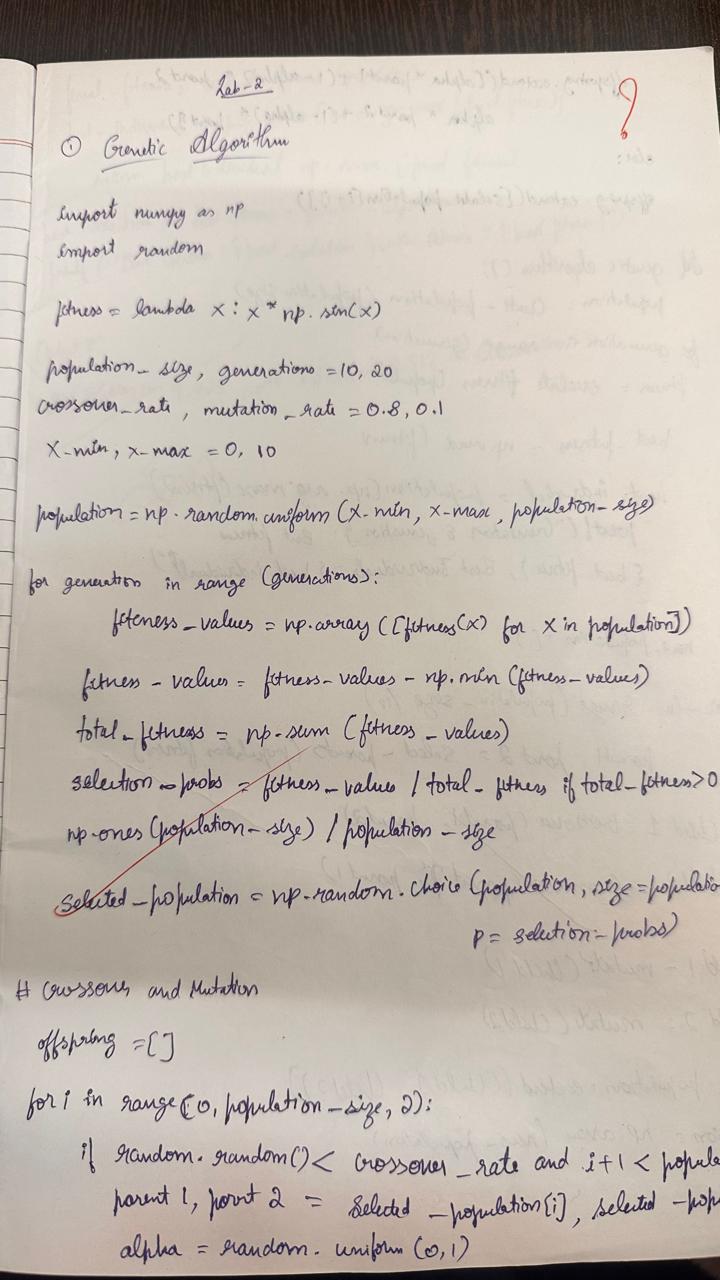 Lab-2
① Genetic Algorithm
import numpy as np
import random
fitness = lambda x : x * np. sin(x)
population_ size, generations = 10, 20
crossover_rate, mutation_rate = 0.8, 0.1
x-min, x-max = 0, 10
population = np. random. uniform (x-min, x-max, population-size)
for generation in range (generations):
fiteness_values = np.array ([fitness(x) for x in population])
fitness - values = fitness-values - np.min (fitness-values)
total_fitness = np-sum (fitness_values)
selection - probs = fitness_values / total_ fitness if total-fitness>0
np-ones (population-size) / population-size
selected_population = np-random.choice (population, size=populatio
p = selection-probs)
# Crossover and Mutation
offspring = []
for i in range(0, population-size, 2):
if random. random() < crossover_rate and i+1 < popula
parent 1, parent 2 = selected _population[i], selected -pop
alpha = random. uniform (0, 1)